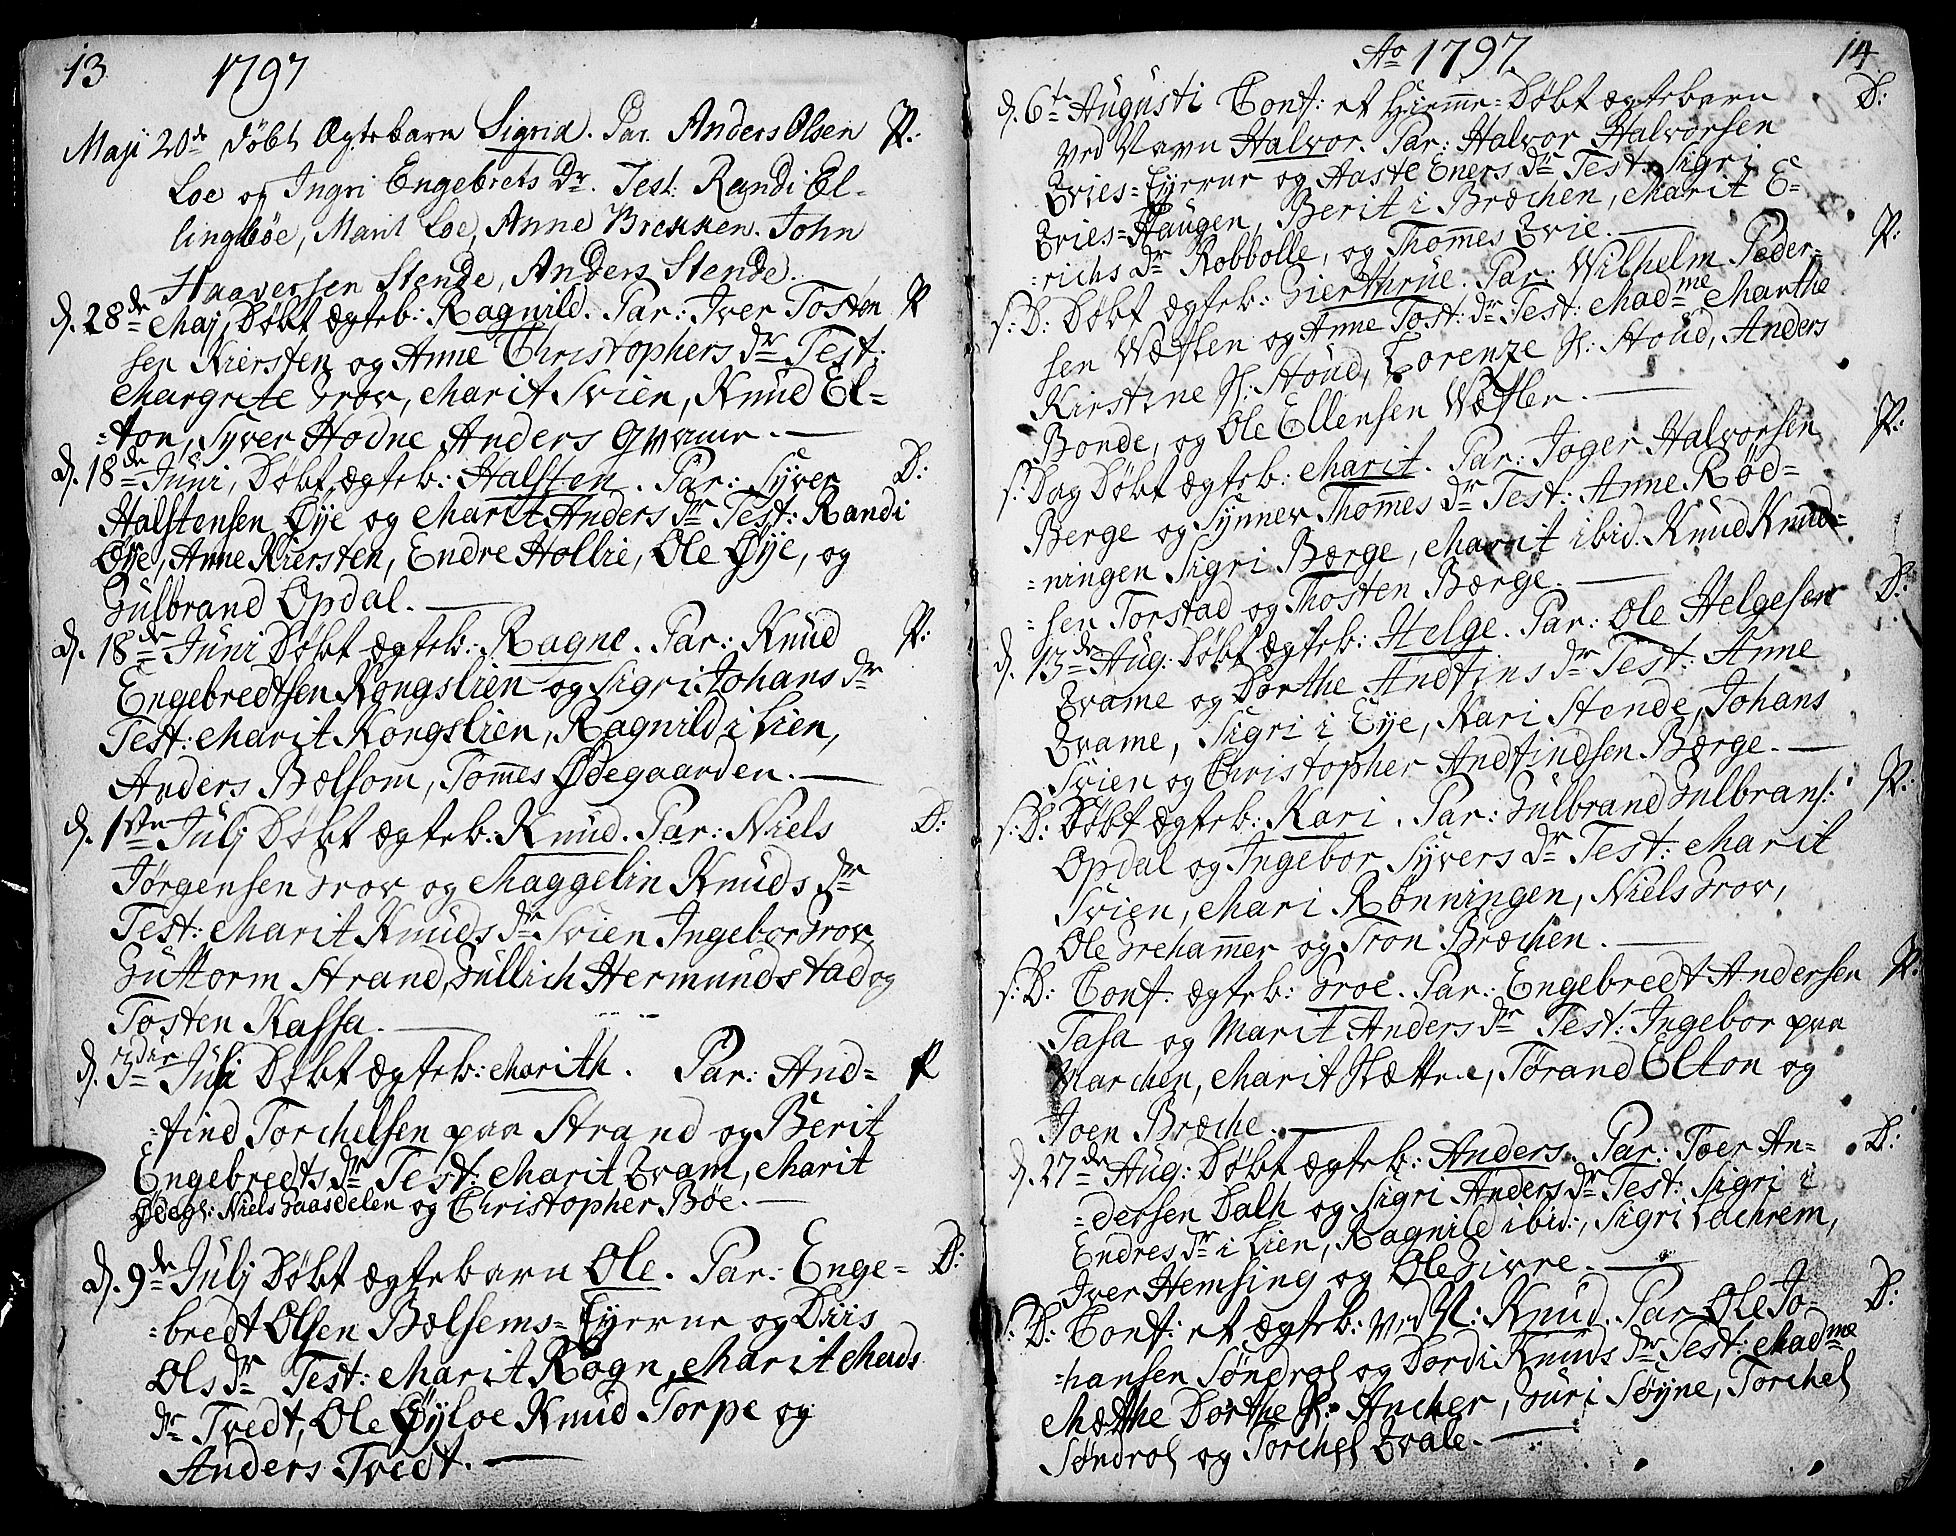 13
1797
Maji 20de Døbt Ægtebarn Sigrid. Par. Anders Olsen P:
Loe og Ingri Engebrets Dr. Test: Randi El-
lingbøe, Marit Loe, Anne Brekken. John
Haaversen Stende, Anders Stende.
d. 28de Maj, Døbt ægteb: Ragnild. Par: Iver Tosten P
sen Kiersten og Anne Christophers Dr Test:
Margrete Grov, Marit Svien, Knud El=
=ton, Syver Hodne Anders Qvame.
d. 18de Juni, Døbt ægteb: Halsten. Par: Syver D:
Halstensen Øÿe og Marit Anders Dr Test: Randi
Øye, Anne Kiersten, Endre Hollie, Ole Øÿe, og
Gulbrand Opdal.
d. 18de Juni Døbt ægteb: Ragne. Par: Knud P:
Engebredtsen Kongslien og Sigri Johans Dr
Test: Marit Kongslien, Ragnild i Lien,
Anders Bælsom, Tom̄es Ødegaarden.
d. 1ste Julj Døbt ægteb. Knud. Par: Niels D:
Jørgensen Grov og Maggelin Knuds Dr
Test: Marit Knuds Dr Svien Ingebor Grov,
Guttorm Strand, Gullich Hermundstad og
Tosten Kassa.
d. 3die Juli Døbt ægteb: Marith. Par: And= P
=find Torchelsen paa Strand og Berit
Engebredts Dr Test: Marit Qvam, Marit
Ødeg: Niels Gaasdelen og Christopher Bøe.
d. 9de Julj Døbt ægtebarn Ole. Par: Enge= D:
=bredt Olsen Bælsems=Eyerne og Diis
Ols Dr Test: Marit Rogn, Marit Mads
Dr Tvedt, Ole Øÿloe Knud Torpe og
Anders Tvedt.
Ao 1797
14
d. 6te Augusti Conf: et Hiem̄e=Døbt ægtebarn D:
ved Navn Halvor. Par: Halvor Halvorsen
Qvies=Eyerne og Aaste Eners Dr Test: Sigri
Qvies=Haugen, Berit i Bræchen, Marit E=
=richs Dr Robbolle, og Thom̄es Qvie.
s: D: Døbt ægteb: Gierthrue. Par: Wilhelm Peder= P:
sen Wæflen og Anne Tost: Dr Test: Madme Marthe
Kirstine Sl: Stoud, Lorenze Sl: Stoud, Anders
Bonde, og Ole Ellensen Wæflen.
s: Dag Døbt ægteb: Marit. Par: Joger Halvorsen P:
Berge og Synnev Thom̄es Dr Test: Anne Rød=
=ningen Sigri Bærge, Marit ibid. Knud Knud=
=sen Torstad og Thosten Bærge.
d. 13de Aug: Døbt ægteb: Helge. Par: Ole Helgesen D:
Qvame og Dorthe Andfins Dr Test: Anne
Qvame, Sigri i Eye, Kari Stende, Johans
Svien og Christopher Andfindsen Bærge.
s: D: Døbt ægteb: Kari. Par: Gulbrand Gulbrans: P:
Opdal og Ingebor Syvers Dr Test: Marit
Svien, Mari Rønningen, Niels Grov,
Ole Greham̄er og Tron Bræchen.
s: D: Conf: ægteb: Groe. Par: Engebredt Andersen P:
Tasa og Marit Anders Dr Test: Ingebor paa
Marchen, Marit Sættre, Tørand Elton og
Joen Bræche.
d. 27de Aug: Døbt ægteb: Anders. Par: Toer An- D:
=dersen Dalh og Sigri Anders Dr Test: Sigri
Endres Dr i Lien, Ragnild ibid:, Sigri Lachrem,
Iver Hemsing og Ole Givre.
s: D: Conf: et ægteb: ved N: Knud. Par Ole Jo- D:
=hansen Søndrol og Dordi Knuds Dr Test: Madme
Mætthe Dorthe Sl: Ancher, Guri Søyne, Torchel
Søndrol og Torchel Qvale.